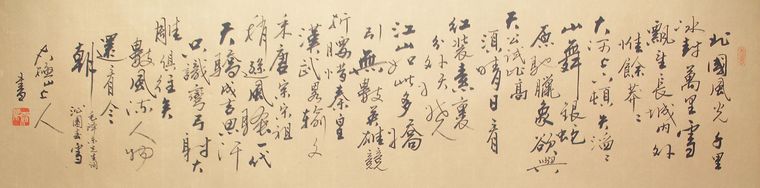 北國風光千里
冰封萬里雪
飄望長城內外
惟餘莽〻
大河上下頓失滔〻
山舞銀蛇
原馳臘象欲與
天公試比高
須晴日看
紅裝素裹
分外妖嬈
江山如此多嬌
引無數英雄競
折腰惜秦皇
漢武略輸文
采唐宗宋祖
稍遜風騷一代
天驕成吉思汗
只識彎弓射大
雕俱往矣
數風流人物
還看今
朝
毛澤東詞
沁園春雪
山上人
書